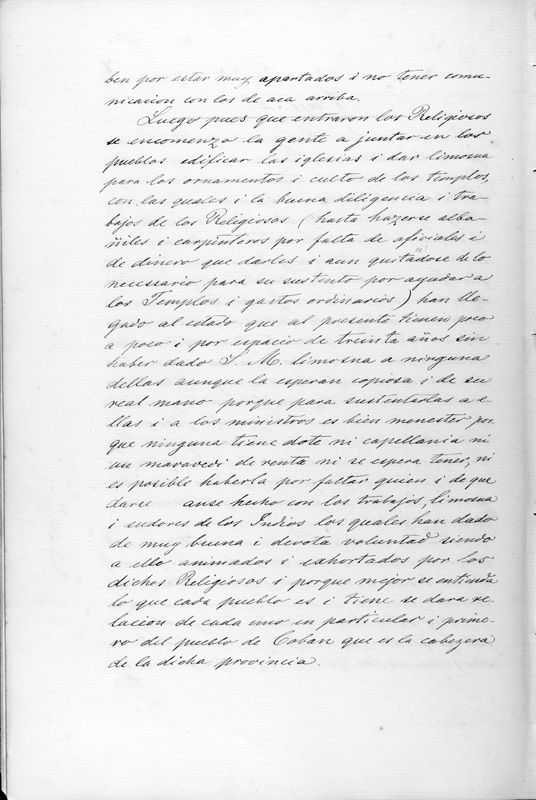 ben por estar muy apartados i no tener comu-
nicacion con los de aca arriba.
Luego pues que entraron los Religiosos
se encomenzo la gente a juntar en los
pueblos edificar las iglesias i dar limosna
para los ornamentos i culto de los templos,
con las quales i la buena diligencia i tra-
bajos de los Religiosos (hasta hazerse alba-
ñiles i carpinteros por falta de oficiales i
de dinero que darles i aun quitadose de lo
necessario para su sustento por ayudar a
los Templos i gastos ordinarios) han lle-
gado al estado que al presente tienen poco
a poco i por espacio de treinta años sin
haber dado S. M. limosna a ninguna
dellas aunque la esperan copiosa i de su
real mano porque para sustentarlas a e-
llas i a los ministros es bien menester por
que ninguna tiene dote ni capellania ni
un maravedi de renta ni se espera tener, ni
es posible haberla por faltar quien i de que
darse anse hecho con los trabajos, limosna
i sudores de los Indios los quales han dado
de muy buena i devota voluntad siendo
a ello animados i exhortados por los
dichos Religiosos i porque mejor se entienda
lo que cada pueblo es i tiene se dara re-
lacion de cada uno en particular i prime-
ro del pueblo de Coban que es la cabezera
de la dicha provincia.